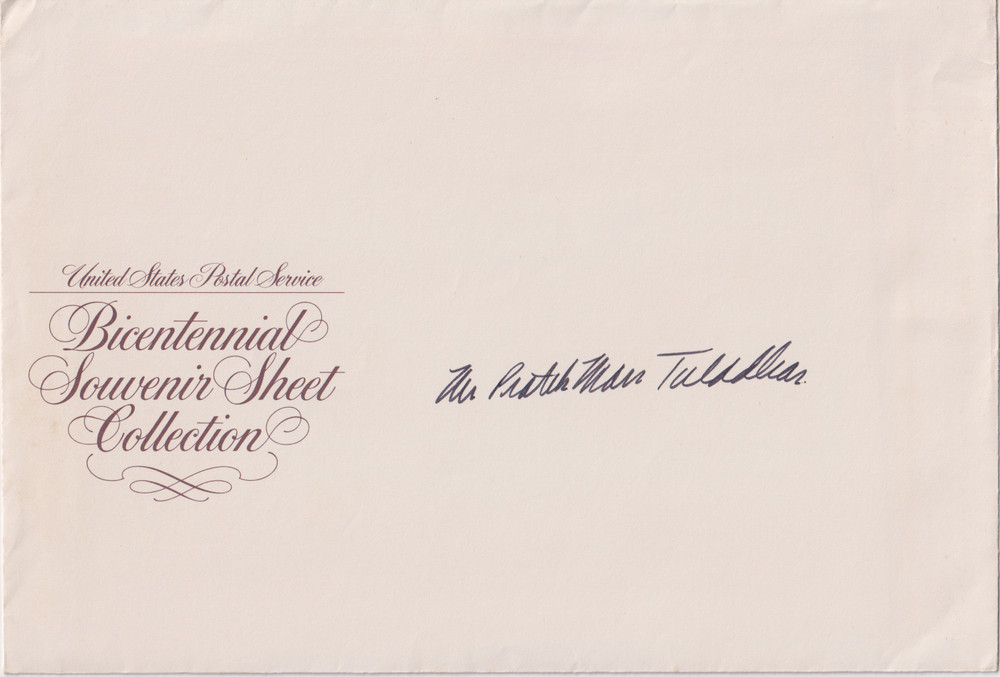 United States Postal Service
Bicentennial
Souvenir Sheet
Collection
Mr Pratek Man Tuladhar.